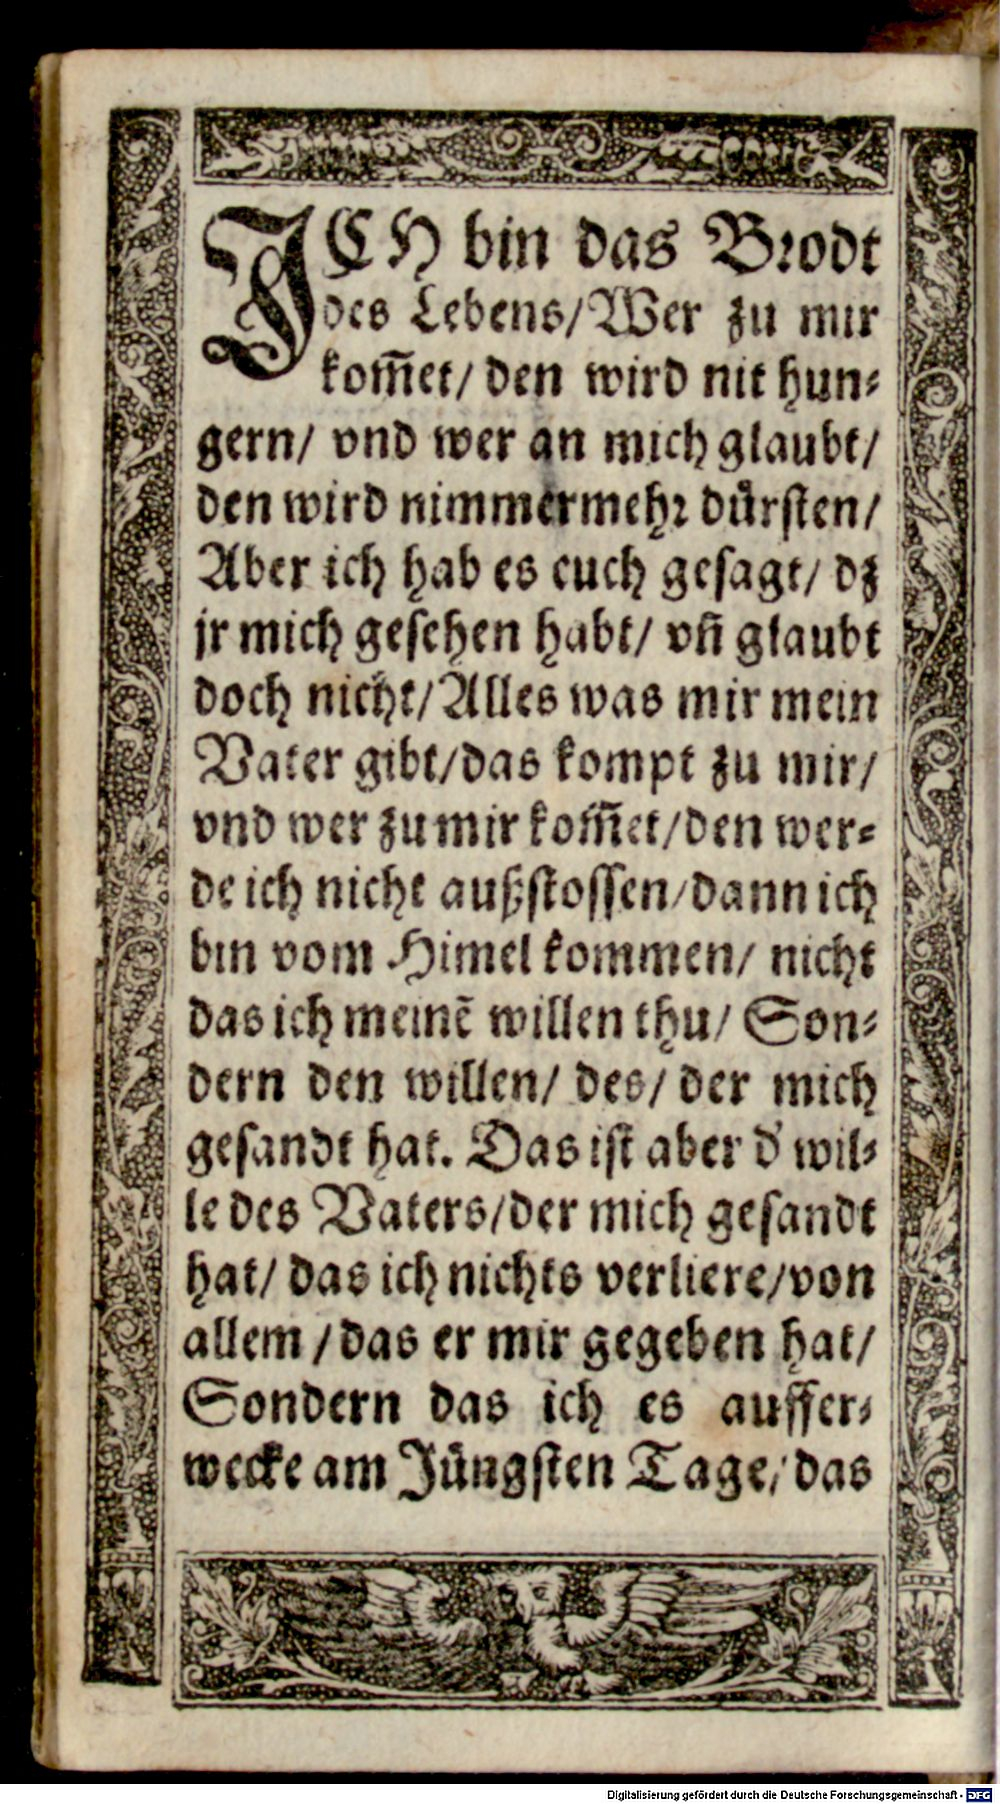 ICH bin das Brodt
des Lebens/Wer zu mir
kom̃et/ den wird nit hun⸗
gern/ vnd wer an mich glaubt/
den wird nimmermehꝛ dürsten/
Aber ich hab es euch gesagt/ dz
jr mich gesehen habt/ vñ glaubt
doch nicht/Alles was mir mein
Vater gibt/das kompt zu mir/
vnd wer zu mir kom̃et/den wer⸗
de ich nicht außstossen/dann ich
bin vom Himel kommen/ nicht
das ich meinẽ willen thu/ Son⸗
dern den willen/ des/ der mich
gesandt hat. Das ist aber d' wil⸗
le des Vaters/der mich gesandt
hat/ das ich nichts verliere/von
allem /das er mir gegeben hat/
Sondern das ich es auffer⸗
wecke am Jüngsten Tage/das
Digitalisierung gefördert durch die Deutsche Forschungsgemeinschaft - DFG